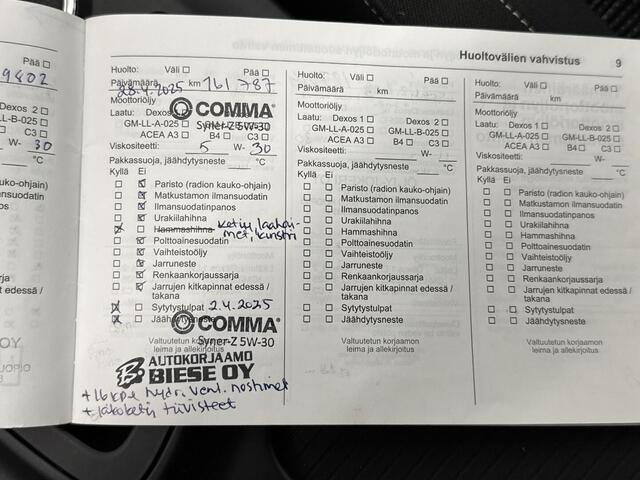 Huoltovälien vahvistus 9
Pää ☐
9802
Dexos 2 ☐
LL-B-025 ☐
C3 ☐
W- 30
°C
Huolto: Väli ☐ Pää ☐
Päivämäärä 28.4.2025 km 161 787
Moottoriöljy
COMMA
Laatu: Dexos 1 ☐ Dexos 2 ☐
Syner-Z 5W-30
GM-LL-A-025 ☐ GM-LL-B-025 ☐
ACEA A3 ☐ B4 ☐ C3 ☐
Viskositeetti: 5 W- 30
Pakkassuoja, jäähdytysneste °C
Kyllä Ei
☐ ☑ Paristo (radion kauko-ohjain)
☐ ☑ Matkustamon ilmansuodatin
☐ ☑ Ilmansuodatinpanos
☐ ☑ Urakiilahihna
☒ ☐ Hammashihna ketju, laahai-
met, kiristin
☐ ☑ Polttoainesuodatin
☐ ☑ Vaihteistööljy
☐ ☑ Jarruneste
☐ ☑ Renkaankorjaussarja
☐ ☑ Jarrujen kitkapinnat edessä /
takana
☒ ☐ Sytytystulpat 2.4.2025
☒ ☐ Jäähdytysneste
COMMA
Syner-Z 5W-30
Valtuutetun korjaamon
leima ja allekirjoitus
AUTOKORJAAMO
BIESE OY
+ 16 kpl hydr. vent. nostimet
+ jakoketj. tiivisteet
Huolto: Väli ☐ Pää ☐
Päivämäärä km
Moottoriöljy
Laatu: Dexos 1 ☐ Dexos 2 ☐
GM-LL-A-025 ☐ GM-LL-B-025 ☐
ACEA A3 ☐ B4 ☐ C3 ☐
Viskositeetti: W-
Pakkassuoja, jäähdytysneste °C
Kyllä Ei
☐ ☐ Paristo (radion kauko-ohjain)
☐ ☐ Matkustamon ilmansuodatin
☐ ☐ Ilmansuodatinpanos
☐ ☐ Urakiilahihna
☐ ☐ Hammashihna
☐ ☐ Polttoainesuodatin
☐ ☐ Vaihteistöljy
☐ ☐ Jarruneste
☐ ☐ Renkaankorjaussarja
☐ ☐ Jarrujen kitkapinnat edessä /
takana
☐ ☐ Sytytystulpat
☐ ☐ Jäähdytysneste
Valtuutetun korjaamon
leima ja allekirjoitus
Huolto: Väli ☐ Pää ☐
Päivämäärä km
Moottoriöljy
Laatu: Dexos 1 ☐ Dexos 2 ☐
GM-LL-A-025 ☐ GM-LL-B-025 ☐
ACEA A3 ☐ B4 ☐ C3 ☐
Viskositeetti: W-
Pakkassuoja, jäähdytysneste °C
Kyllä Ei
☐ ☐ Paristo (radion kauko-ohjain)
☐ ☐ Matkustamon ilmansuodatin
☐ ☐ Ilmansuodatinpanos
☐ ☐ Urakiilahihna
☐ ☐ Hammashihna
☐ ☐ Polttoainesuodatin
☐ ☐ Vaihteistöljy
☐ ☐ Jarruneste
☐ ☐ Renkaankorjaussarja
☐ ☐ Jarrujen kitkapinnat edessä /
takana
☐ ☐ Sytytystulpat
☐ ☐ Jäähdytysneste
Valtuutetun korjaamon
leima ja allekirjoitus